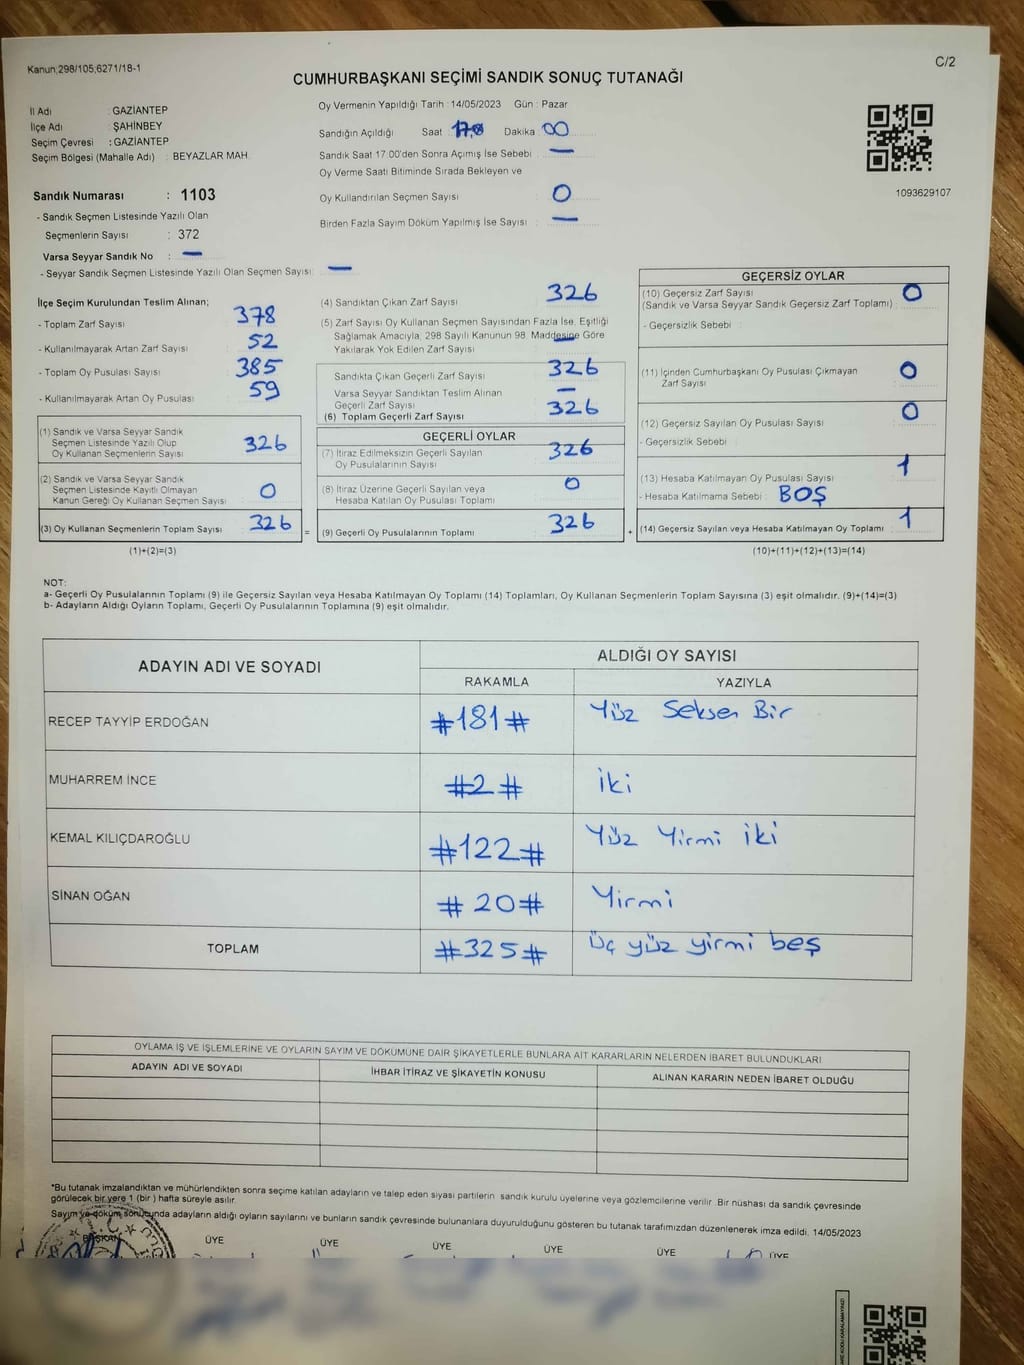 Kanun;298/105;6271/18-1
C/2
CUMHURBAŞKANI SEÇİMİ SANDIK SONUÇ TUTANAĞI
İl Adı : GAZİANTEP
İlçe Adı : ŞAHİNBEY
Seçim Çevresi : GAZİANTEP
Seçim Bölgesi (Mahalle Adı) : BEYAZLAR MAH.
Sandık Numarası : 1103
- Sandık Seçmen Listesinde Yazılı Olan
Seçmenlerin Sayısı : 372
Varsa Seyyar Sandık No : —
- Seyyar Sandık Seçmen Listesinde Yazılı Olan Seçmen Sayısı: —
Oy Vermenin Yapıldığı Tarih : 14/05/2023 Gün : Pazar
Sandığın Açıldığı Saat : Dakika : 00
Sandık Saat 17:00'den Sonra Açımış İse Sebebi : —
Oy Verme Saati Bitiminde Sırada Bekleyen ve
Oy Kullandırılan Seçmen Sayısı : 0
Birden Fazla Sayım Döküm Yapılmış İse Sayısı : —
1093629107
İlçe Seçim Kurulundan Teslim Alınan;
- Toplam Zarf Sayısı : 378
- Kullanılmayarak Artan Zarf Sayısı : 52
- Toplam Oy Pusulası Sayısı : 385
- Kullanılmayarak Artan Oy Pusulası : 59
(1) Sandık ve Varsa Seyyar Sandık
Seçmen Listesinde Yazılı Olup
Oy Kullanan Seçmenlerin Sayısı : 326
(2) Sandık ve Varsa Seyyar Sandık
Seçmen Listesinde Kayıtlı Olmayan
Kanun Gereği Oy Kullanan Seçmen Sayısı : 0
(3) Oy Kullanan Seçmenlerin Toplam Sayısı : 326
(1)+(2)=(3)
(4) Sandıktan Çıkan Zarf Sayısı : 326
(5) Zarf Sayısı Oy Kullanan Seçmen Sayısından Fazla İse, Eşitliği
Sağlamak Amacıyla, 298 Sayılı Kanunun 98. Maddesine Göre
Yakılarak Yok Edilen Zarf Sayısı : —
Sandıkta Çıkan Geçerli Zarf Sayısı : 326
Varsa Seyyar Sandıktan Teslim Alınan
Geçerli Zarf Sayısı : —
(6) Toplam Geçerli Zarf Sayısı : 326
GEÇERLİ OYLAR
(7) İtiraz Edilmeksizin Geçerli Sayılan
Oy Pusulalarının Sayısı : 326
(8) İtiraz Üzerine Geçerli Sayılan veya
Hesaba Katılan Oy Pusulası Toplamı : 0
= (9) Geçerli Oy Pusulalarının Toplamı : 326 +
GEÇERSİZ OYLAR
(10) Geçersiz Zarf Sayısı : 0
(Sandık ve Varsa Seyyar Sandık Geçersiz Zarf Toplamı)
- Geçersizlik Sebebi :
(11) İçinden Cumhurbaşkanı Oy Pusulası Çıkmayan
Zarf Sayısı : 0
(12) Geçersiz Sayılan Oy Pusulası Sayısı : 0
- Geçersizlik Sebebi :
(13) Hesaba Katılmayan Oy Pusulası Sayısı : 1
- Hesaba Katılmama Sebebi : BOŞ
(14) Geçersiz Sayılan veya Hesaba Katılmayan Oy Toplamı : 1
(10)+(11)+(12)+(13)=(14)
NOT:
a- Geçerli Oy Pusulalarının Toplamı (9) ile Geçersiz Sayılan veya Hesaba Katılmayan Oy Toplamı (14) Toplamları, Oy Kullanan Seçmenlerin Toplam Sayısına (3) eşit olmalıdır. (9)+(14)=(3)
b- Adayların Aldığı Oyların Toplamı, Geçerli Oy Pusulalarının Toplamına (9) eşit olmalıdır.
ADAYIN ADI VE SOYADI
ALDIĞI OY SAYISI
RAKAMLA YAZIYLA
RECEP TAYYİP ERDOĞAN #181# Yüz Seksen Bir
MUHARREM İNCE #2# İki
KEMAL KILIÇDAROĞLU #122# Yüz Yirmi iki
SİNAN OĞAN #20# Yirmi
TOPLAM #325# Üç yüz yirmi beş
OYLAMA İŞ VE İŞLEMLERİNE VE OYLARIN SAYIM VE DÖKÜMÜNE DAİR ŞİKAYETLERLE BUNLARA AİT KARARLARIN NELERDEN İBARET BULUNDUKLARI
ADAYIN ADI VE SOYADI İHBAR İTİRAZ VE ŞİKAYETİN KONUSU ALINAN KARARIN NEDEN İBARET OLDUĞU
*Bu tutanak imzalandıktan ve mühürlendikten sonra seçime katılan adayların ve talep eden siyasi partilerin sandık kurulu üyelerine veya gözlemcilerine verilir. Bir nüshası da sandık çevresinde
görülecek bir yere 1 (bir) hafta süreyle asılır.
Sayım ve döküm sonucunda adayların aldığı oyların sayılarını ve bunların sandık çevresinde bulunanlara duyurulduğunu gösteren bu tutanak tarafımızdan düzenlenerek imza edildi. 14/05/2023
BAŞKAN ÜYE ÜYE ÜYE ÜYE ÜYE ÜYE